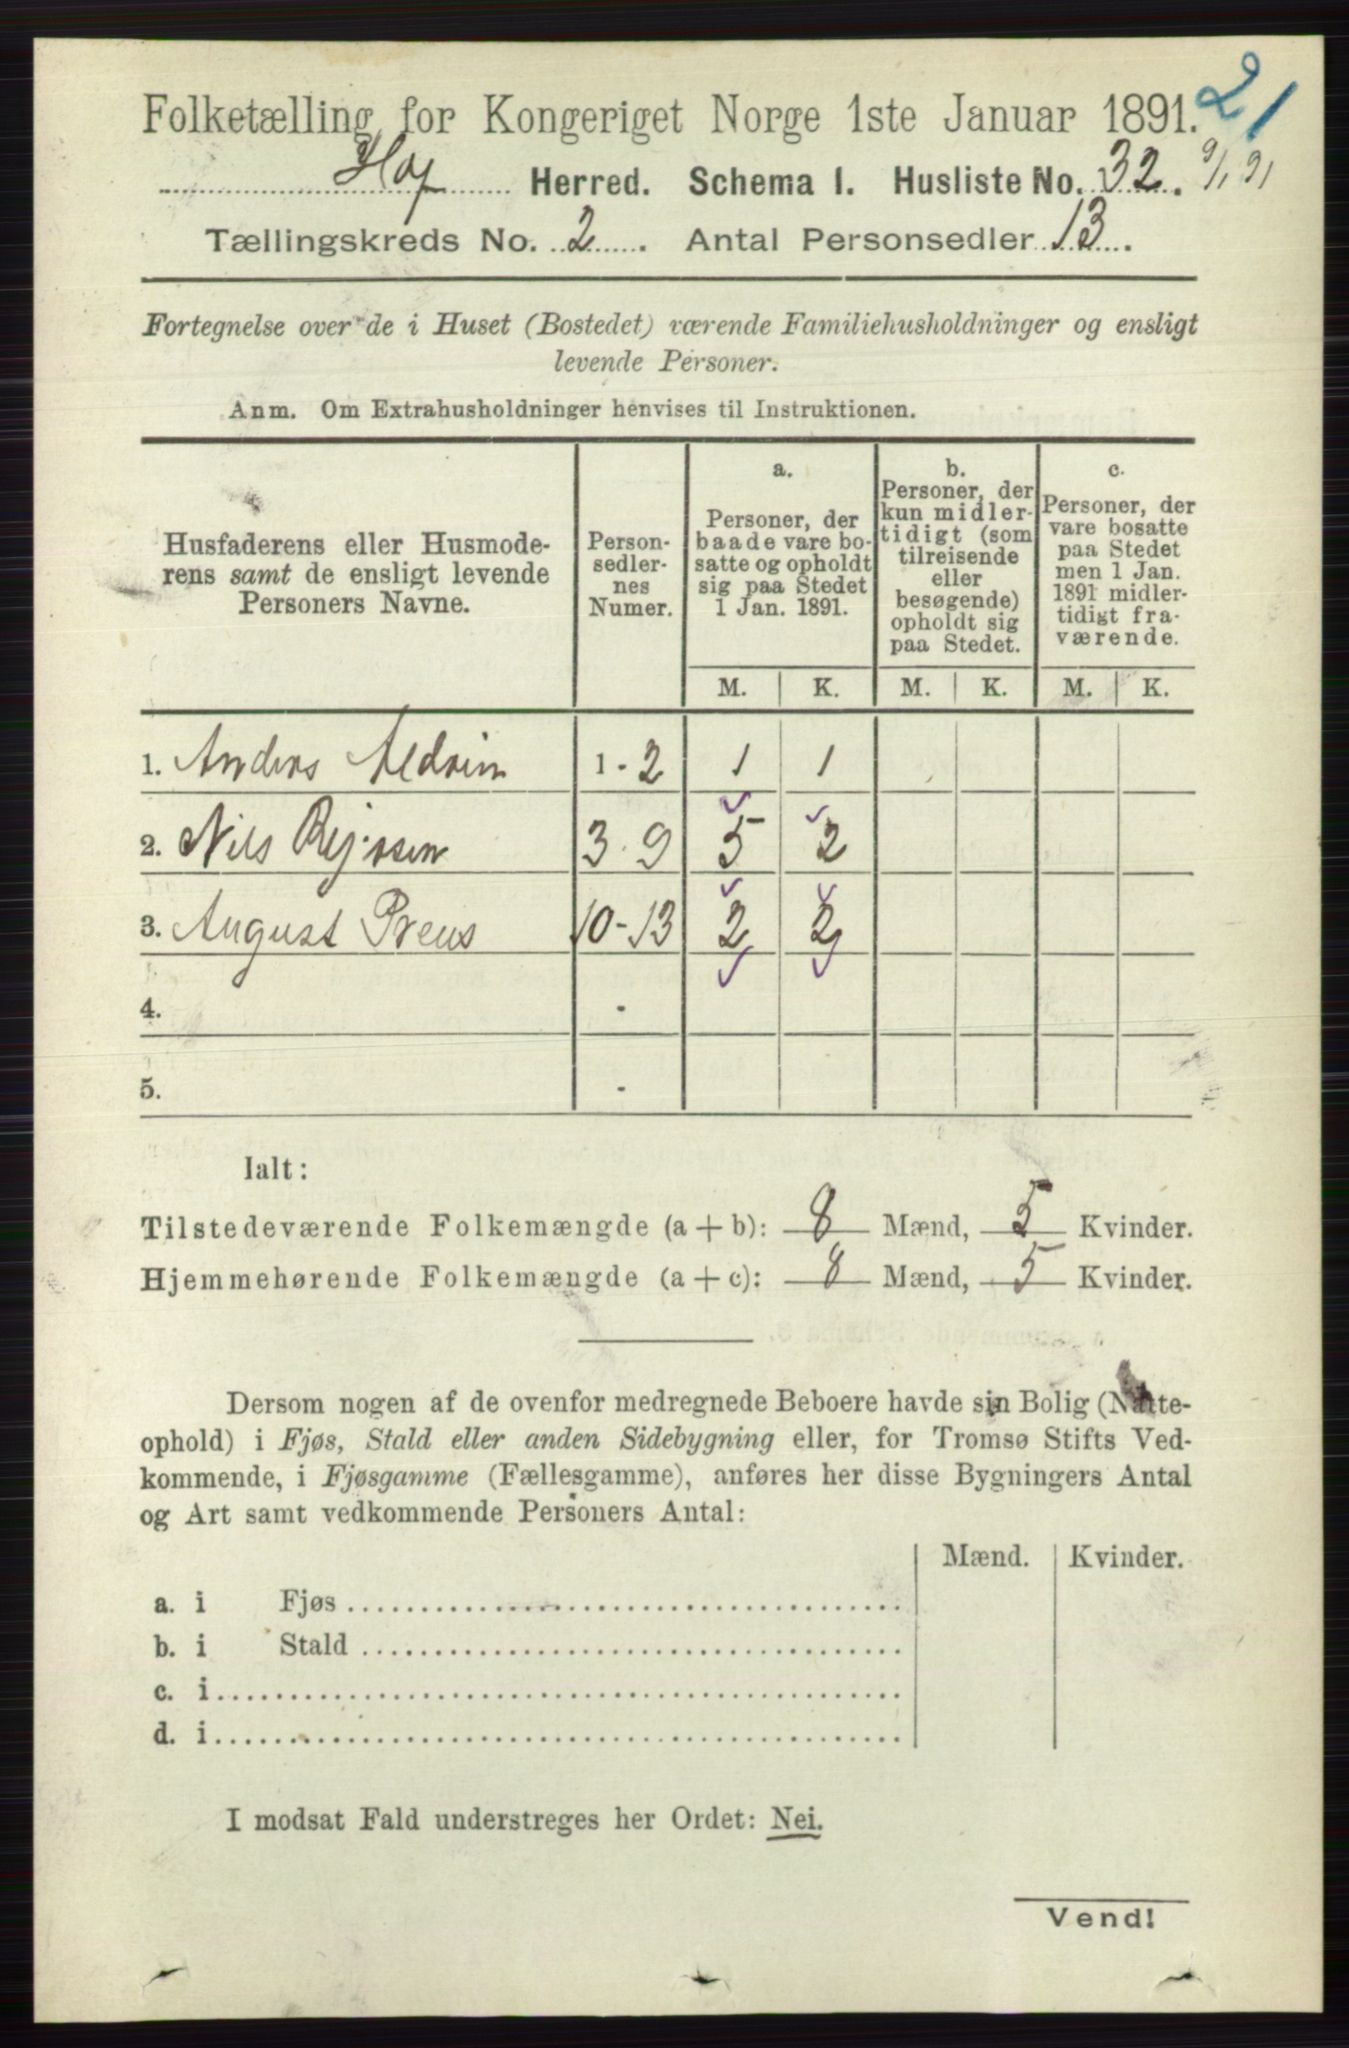 21
Folketælling for Kongeriget Norge 1ste Januar 1891.
Hof Herred. Schema I. Husliste No. 32. 9/1 91
Tællingskreds No. 2. Antal Personsedler 13.
Fortegnelse over de i Huset (Bostedet) værende Familiehusholdninger og ensligt
levende Personer.
Anm. Om Extrahusholdninger henvises til Instruktionen.
Husfaderens eller Husmode-
rens samt de ensligt levende
Personers Navne.
Person-
sedler-
nes
Numer.
a.
Personer, der
baade vare bo-
satte og opholdt
sig paa Stedet
1 Jan. 1891.
b.
Personer, der
kun midler-
tidigt (som
tilreisende
eller
besøgende)
opholdt sig
paa Stedet.
c.
Personer, der
vare bosatte
paa Stedet
men 1 Jan.
1891 midler-
tidigt fra-
værende.
M. K. M. K. M. K.
1. Anders 1-2 1 1
2. Nils 3-9 5 2
3. August Preus 10-13 2 2
4. -
5. -
Ialt:
Tilstedeværende Folkemængde (a + b): 8 Mænd, 5 Kvinder.
Hjemmehørende Folkemængde (a + c): 8 Mænd, 5 Kvinder.
Dersom nogen af de ovenfor medregnede Beboere havde sin Bolig (Natte-
ophold) i Fjøs, Stald eller anden Sidebygning eller, for Tromsø Stifts Ved-
kommende, i Fjøsgamme (Fællesgamme), anføres her disse Bygningers Antal
og Art samt vedkommende Personers Antal:
Mænd. Kvinder.
a. i Fjøs
b. i Stald
c. i
d. i
I modsat Fald understreges her Ordet: Nei.
Vend!